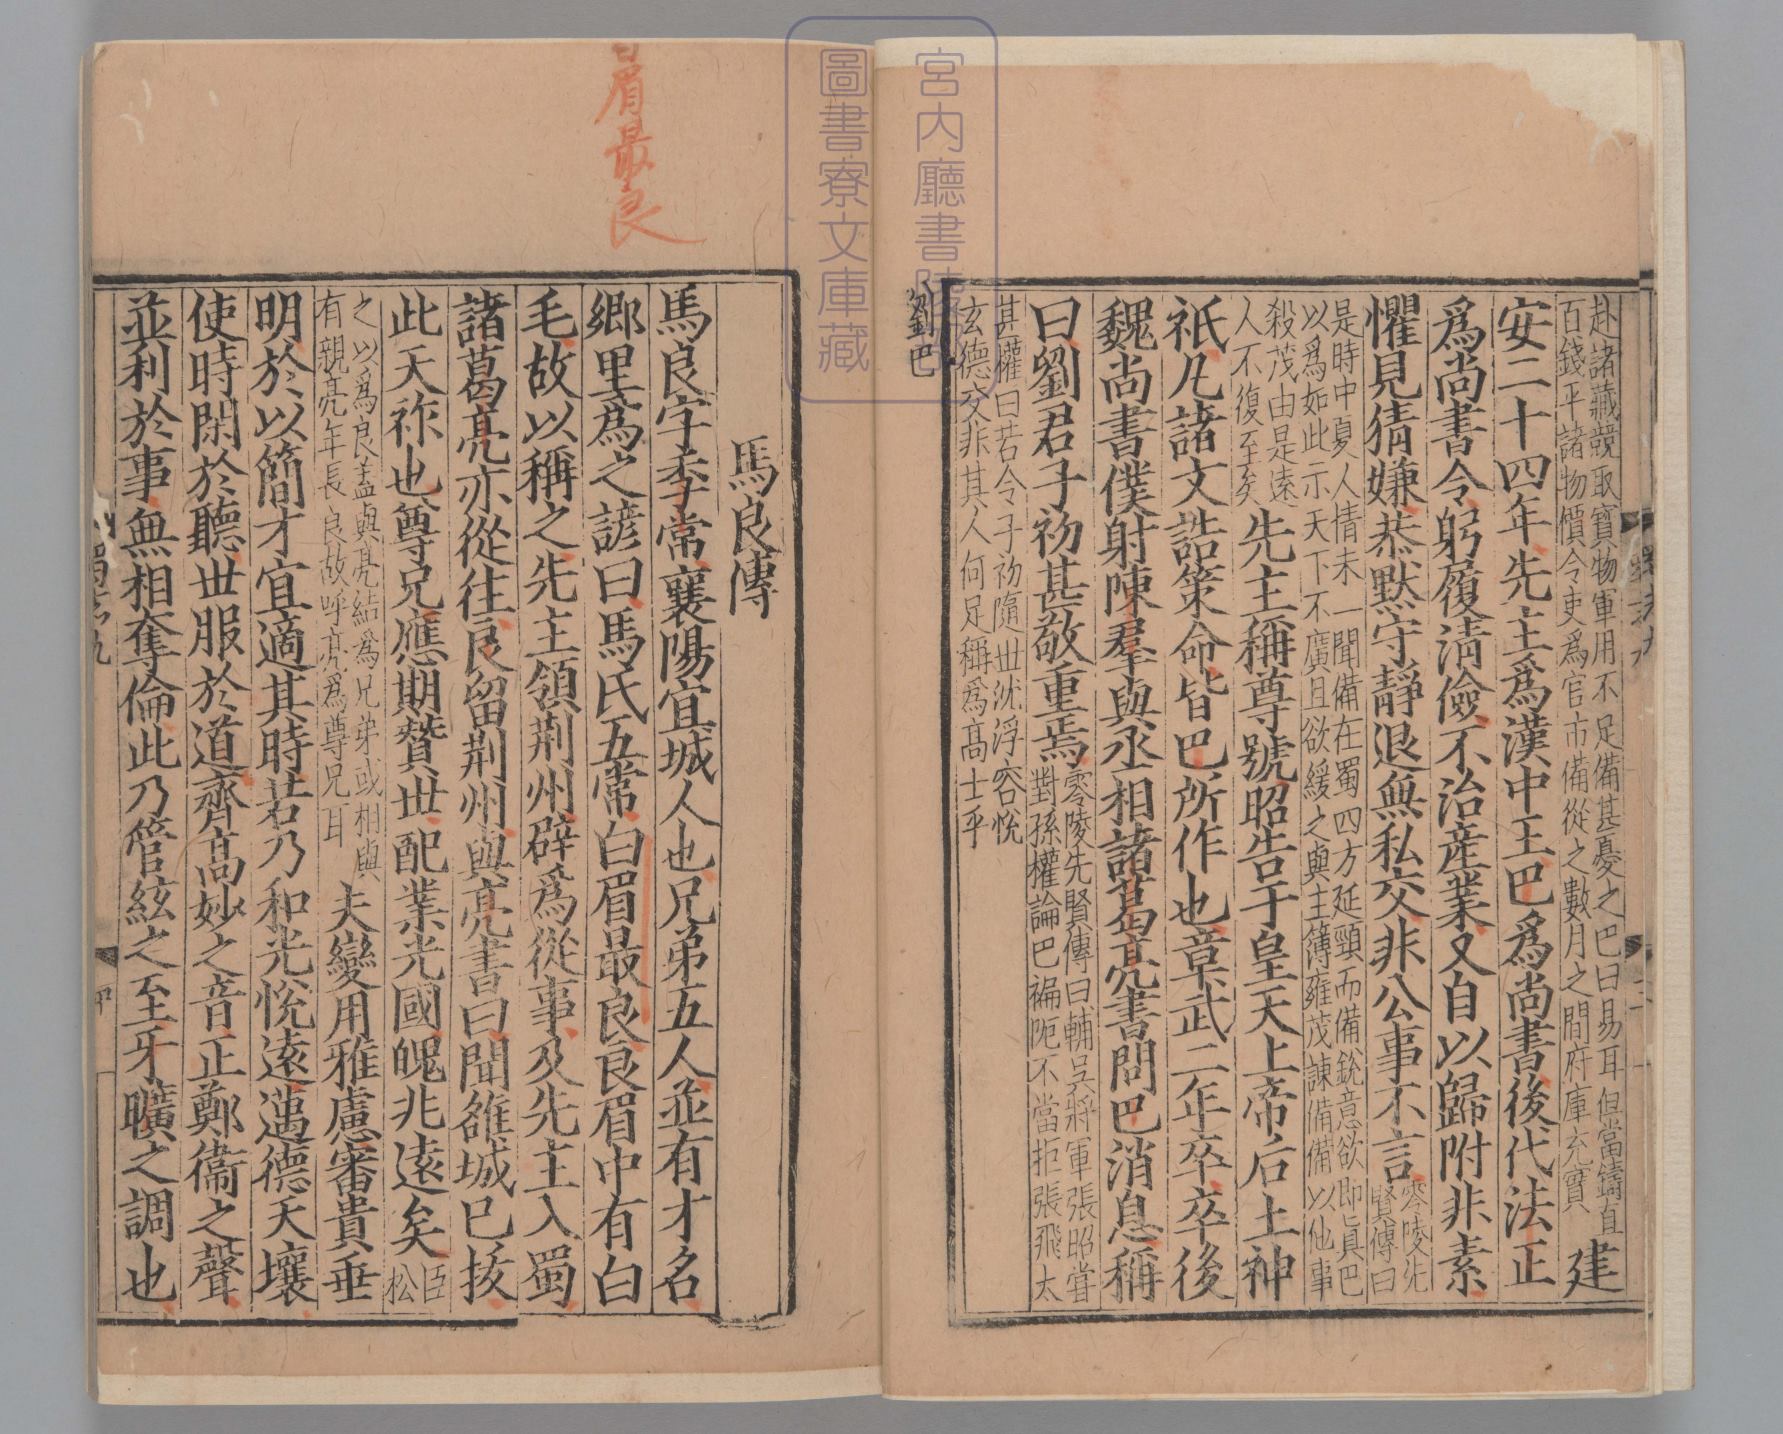 赴諸藏競取寶物軍用不足備甚憂之巴曰易耳但當鑄直
百錢平諸物價令吏爲官市備從之數月之間府庫充實
建
安二十四年先主爲漢中王巴爲尚書後代法正
爲尚書令躬履淸儉不治產業又自以歸附非素
懼見猜嫌恭默守靜退無私交非公事不言
零陵先
賢傳曰
是時中夏人情未一聞備在蜀四方延頸而備銳意欲卽眞巴
以爲如此示天下不廣且欲緩之與主簿雍茂諫備備以他事
殺茂由是遠
人不復至矣
先主稱尊號昭告于皇天上帝后土神
祇凡諸文誥策命皆巴所作也章武二年卒卒後
魏尚書僕射陳羣與丞相諸葛亮書問巴消息稱
曰劉君子初甚敬重焉
零陵先賢傳曰輔吳將軍張昭嘗
對孫權論巴褊阨不當拒張飛太
甚權曰若令子初隨世沈浮容悅
玄德交非其人何足稱爲高士乎
劉巴
宮内廳書陵部
圖書寮文庫藏
眉最良
馬良傳
馬良字季常襄陽宜城人也兄弟五人並有才名
鄉里爲之諺曰馬氏五常白眉最良良眉中有白
毛故以稱之先主領荆州辟爲從事及先主入蜀
諸葛亮亦從往良留荆州與亮書曰聞雒城已拔
此天祚也尊兄應期贊世配業光國魄兆遠矣
臣
松
之以爲良蓋與亮結爲兄弟或相與
有親亮年長良故呼亮爲尊兄耳
夫變用雅慮審貴垂
明於以簡才宜適其時若乃和光悅遠邁德天壤
使時閑於聽世服於道齊高妙之音正鄭衞之聲
並利於事無相奪倫此乃管絃之至牙曠之調也
蜀志九